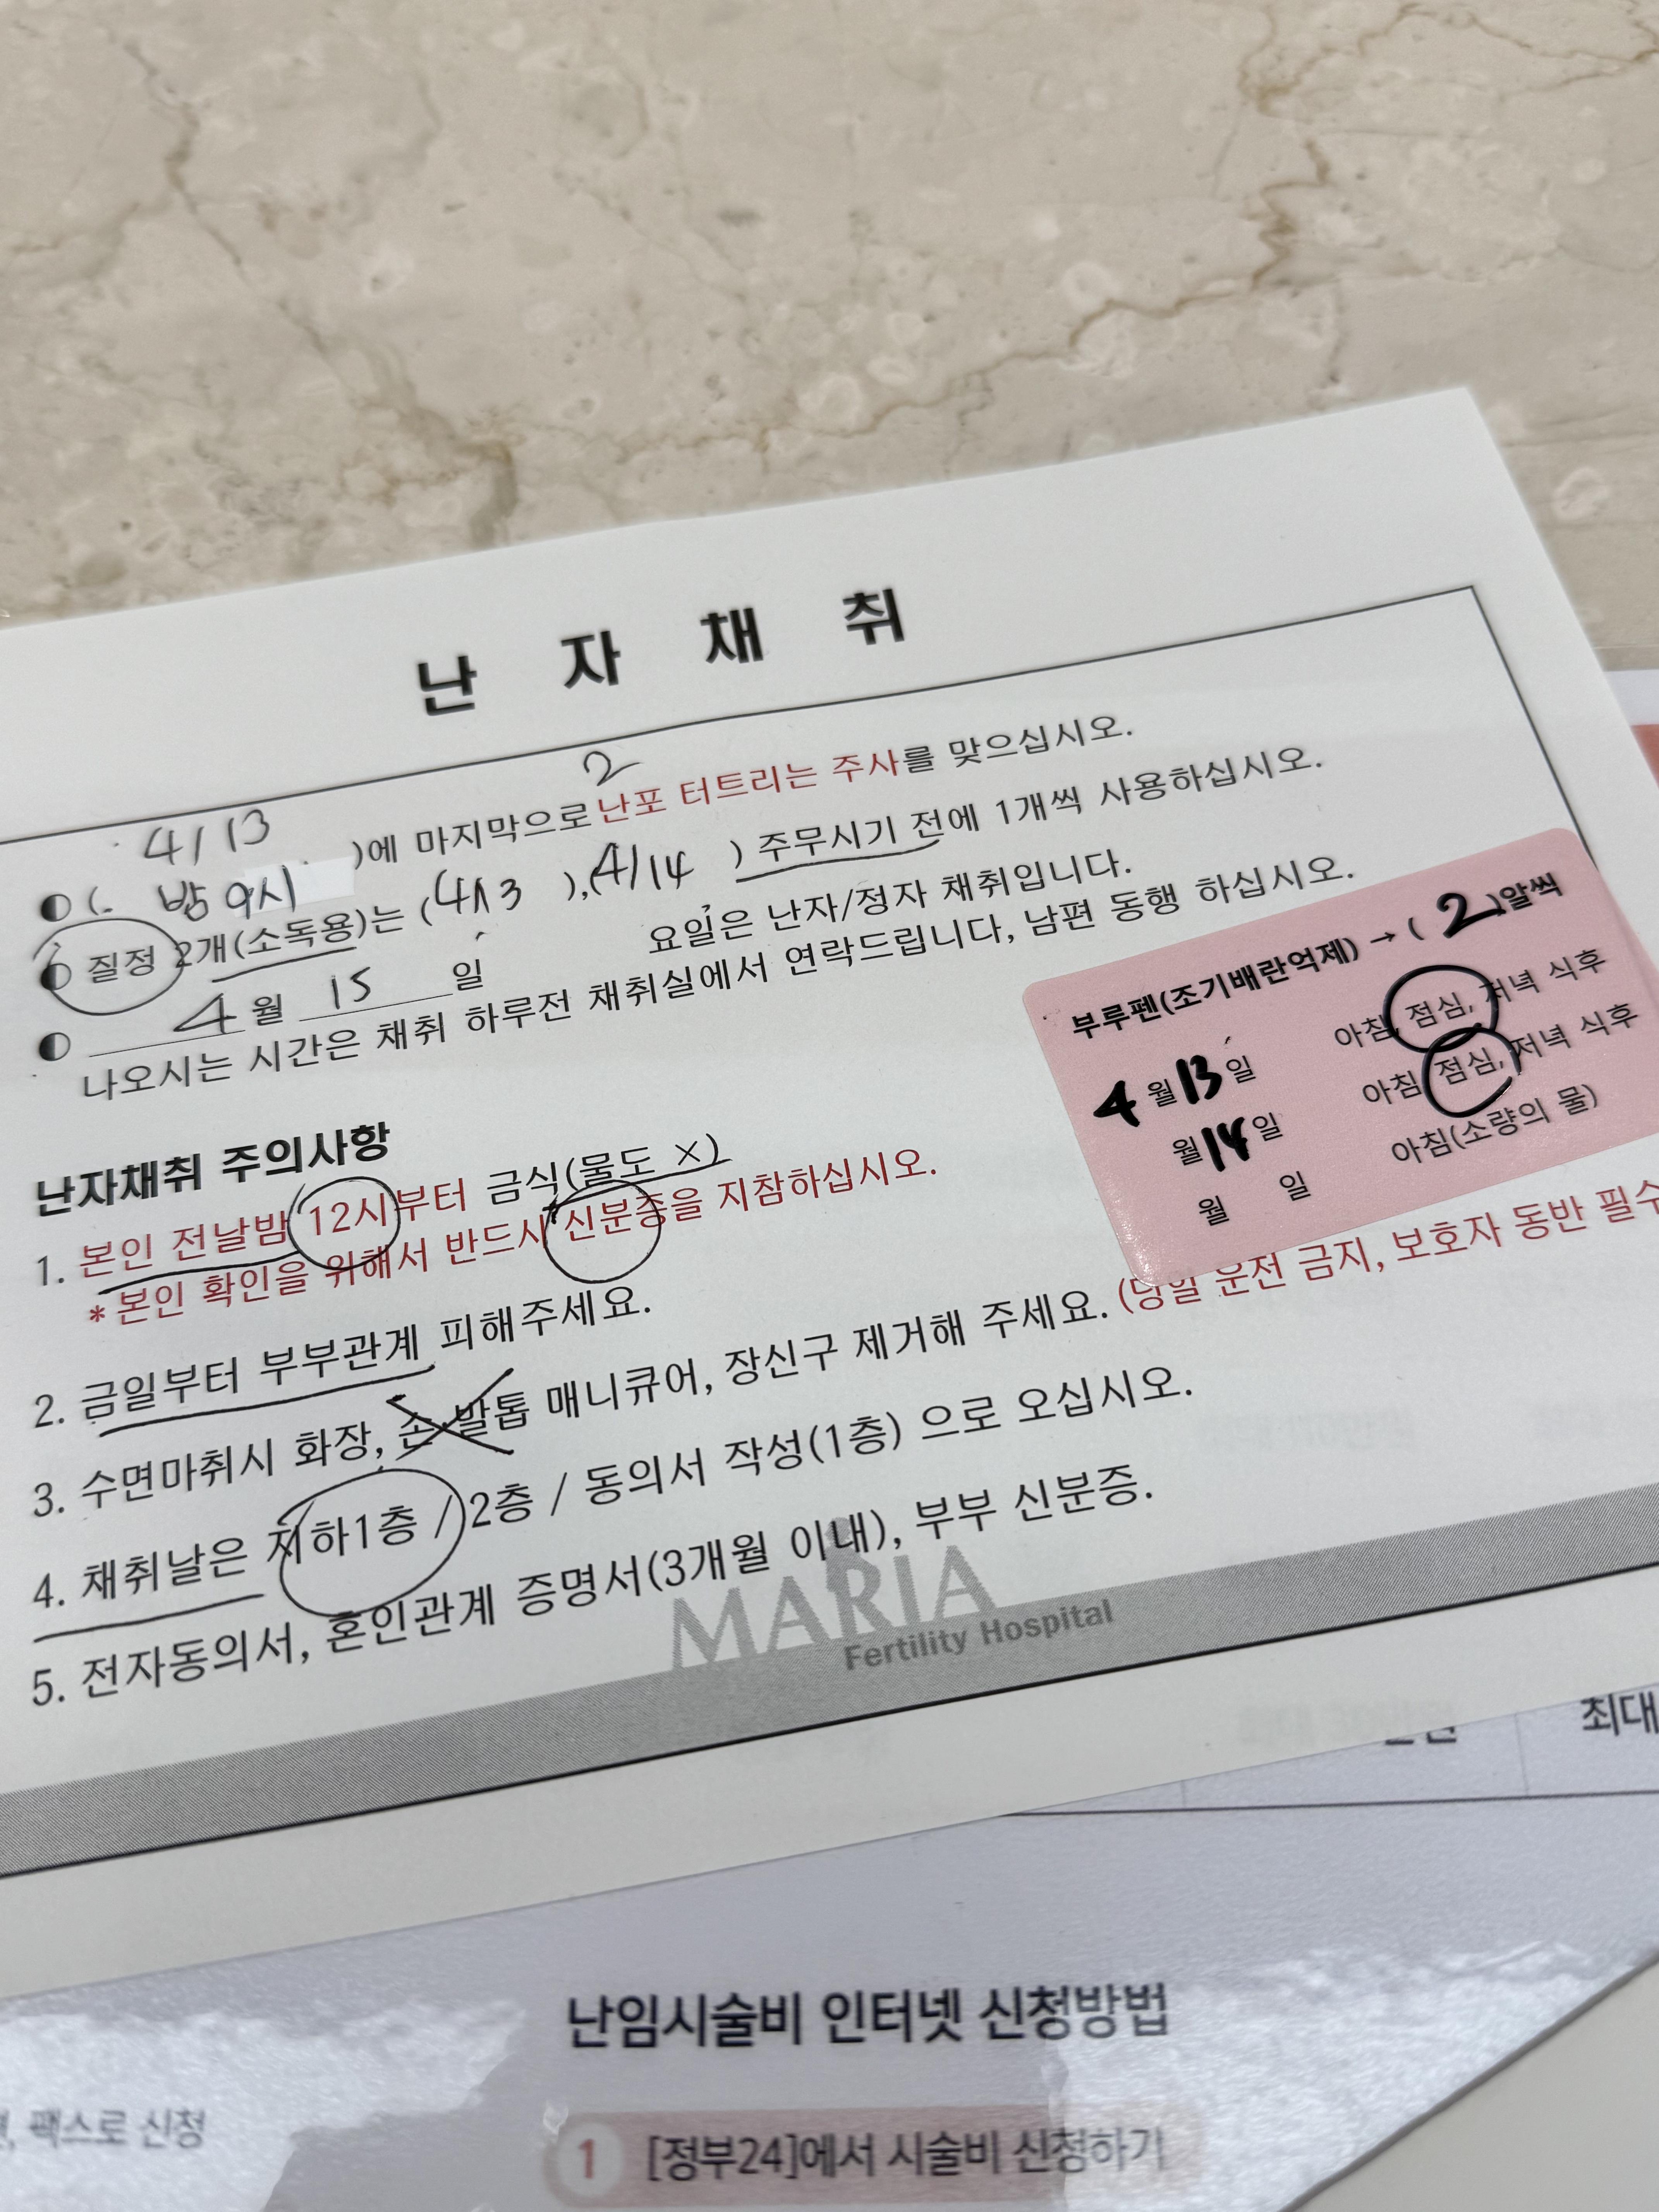 난 자 채 취
4/13
2
( 밤 9시 )에 마지막으로 난포 터트리는 주사를 맞으십시오.
질정 2개(소독용)는 (4/13 ),(4/14 ) 주무시기 전에 1개씩 사용하십시오.
4 월 15 일 요일은 난자/정자 채취입니다.
나오시는 시간은 채취 하루전 채취실에서 연락드립니다, 남편 동행 하십시오.
부루펜(조기배란억제) → ( 2 )알씩
4 월 13 일 아침, 점심, 저녁 식후
월 14 일 아침, 점심, 저녁 식후
월 일 아침(소량의 물)
난자채취 주의사항
1. 본인 전날밤 12시부터 금식(물도 ×)
*본인 확인을 위해서 반드시 신분증을 지참하십시오.
2. 금일부터 부부관계 피해주세요.
3. 수면마취시 화장, 손,발톱 매니큐어, 장신구 제거해 주세요. (당일 운전 금지, 보호자 동반 필수
4. 채취날은 지하1층 / 2층 / 동의서 작성(1층) 으로 오십시오.
5. 전자동의서, 혼인관계 증명서(3개월 이내), 부부 신분증.
MARIA
Fertility Hospital
최대
난임시술비 인터넷 신청방법
팩스로 신청
1 [정부24]에서 시술비 신청하기